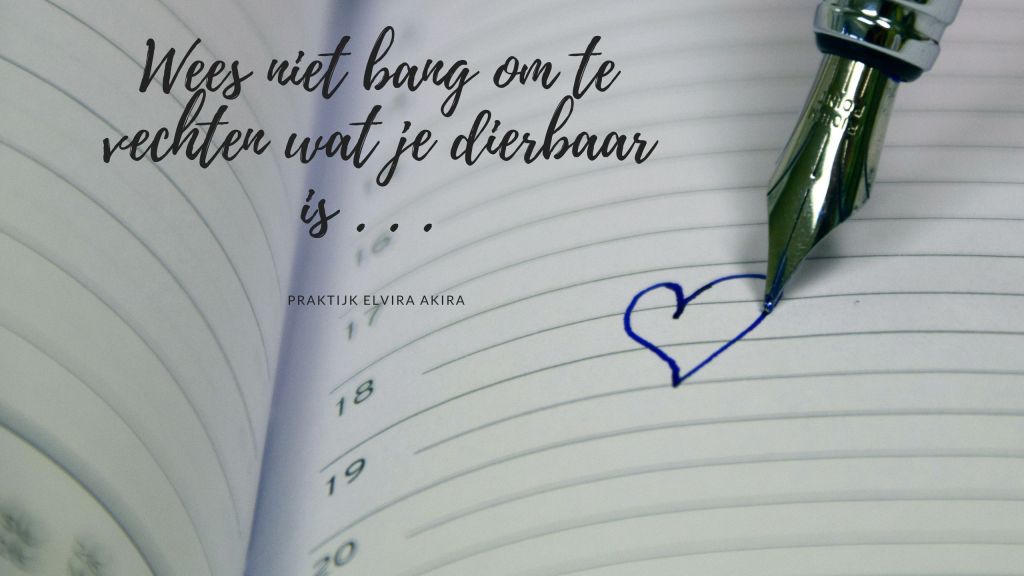 Wees niet bang om te
vechten wat je dierbaar
is . . .
PRAKTIJK ELVIRA AKIRA
16
17
18
19
20